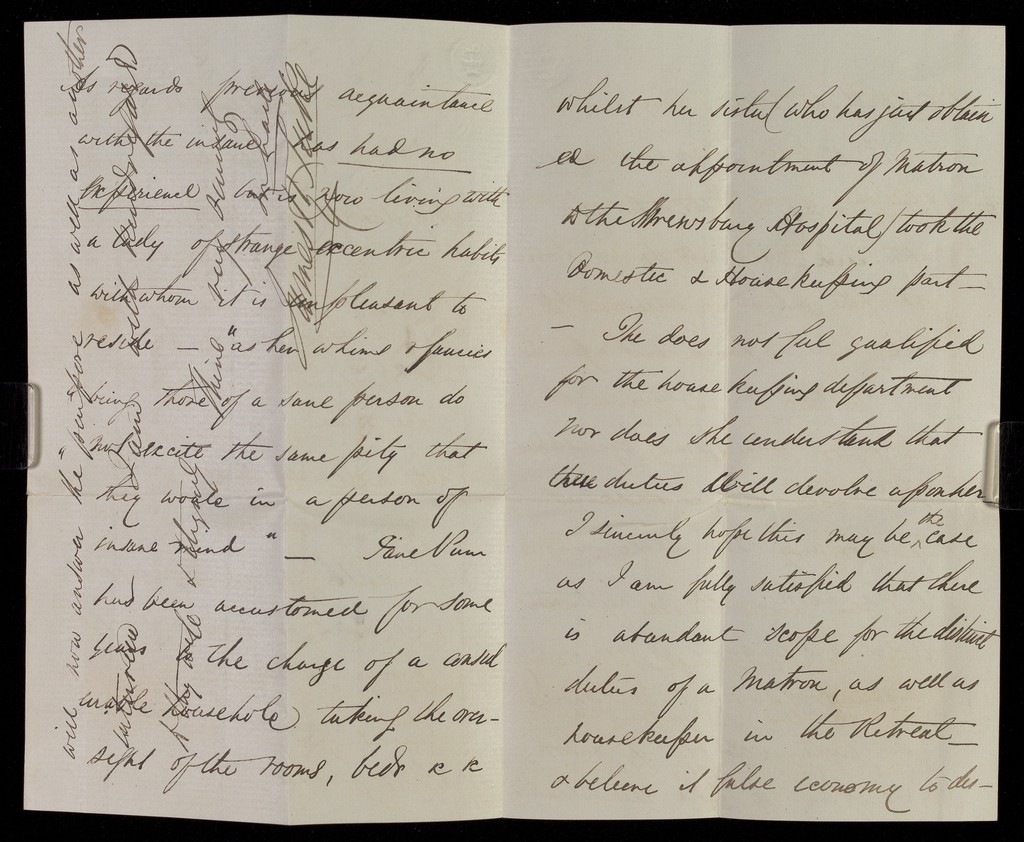 As regards previous acquaintance
with the insane has had no
experience but is now living with
a lady of strange eccentric habits
with whom it is unpleasant to
reside — "as her whims & fancies
being those of a sane person do
not excite the same pity that
they would in a person of
insane mind" — Jane
had been accustomed for some
years to the charge of a consid
erable household taking the over-
sight of the rooms, beds &c &c
whilst her sister (who has just obtain
ed the appointment of Matron
to the Shrewsbury Hospital) took the
Domestic & Housekeeping part —
— She does not feel qualified
for the house keeping department
nor does she understand that
these duties will devolve upon her
I sincerely hope this may be the case
as I am fully satisfied that there
is abundant scope for the distinct
duties of a Matron, as well as
housekeeper in the Retreat —
& believe it false economy to des-
will now answer the purpose as well as another
I am with kind regard
to thy wife & thyself
thine very sincerely